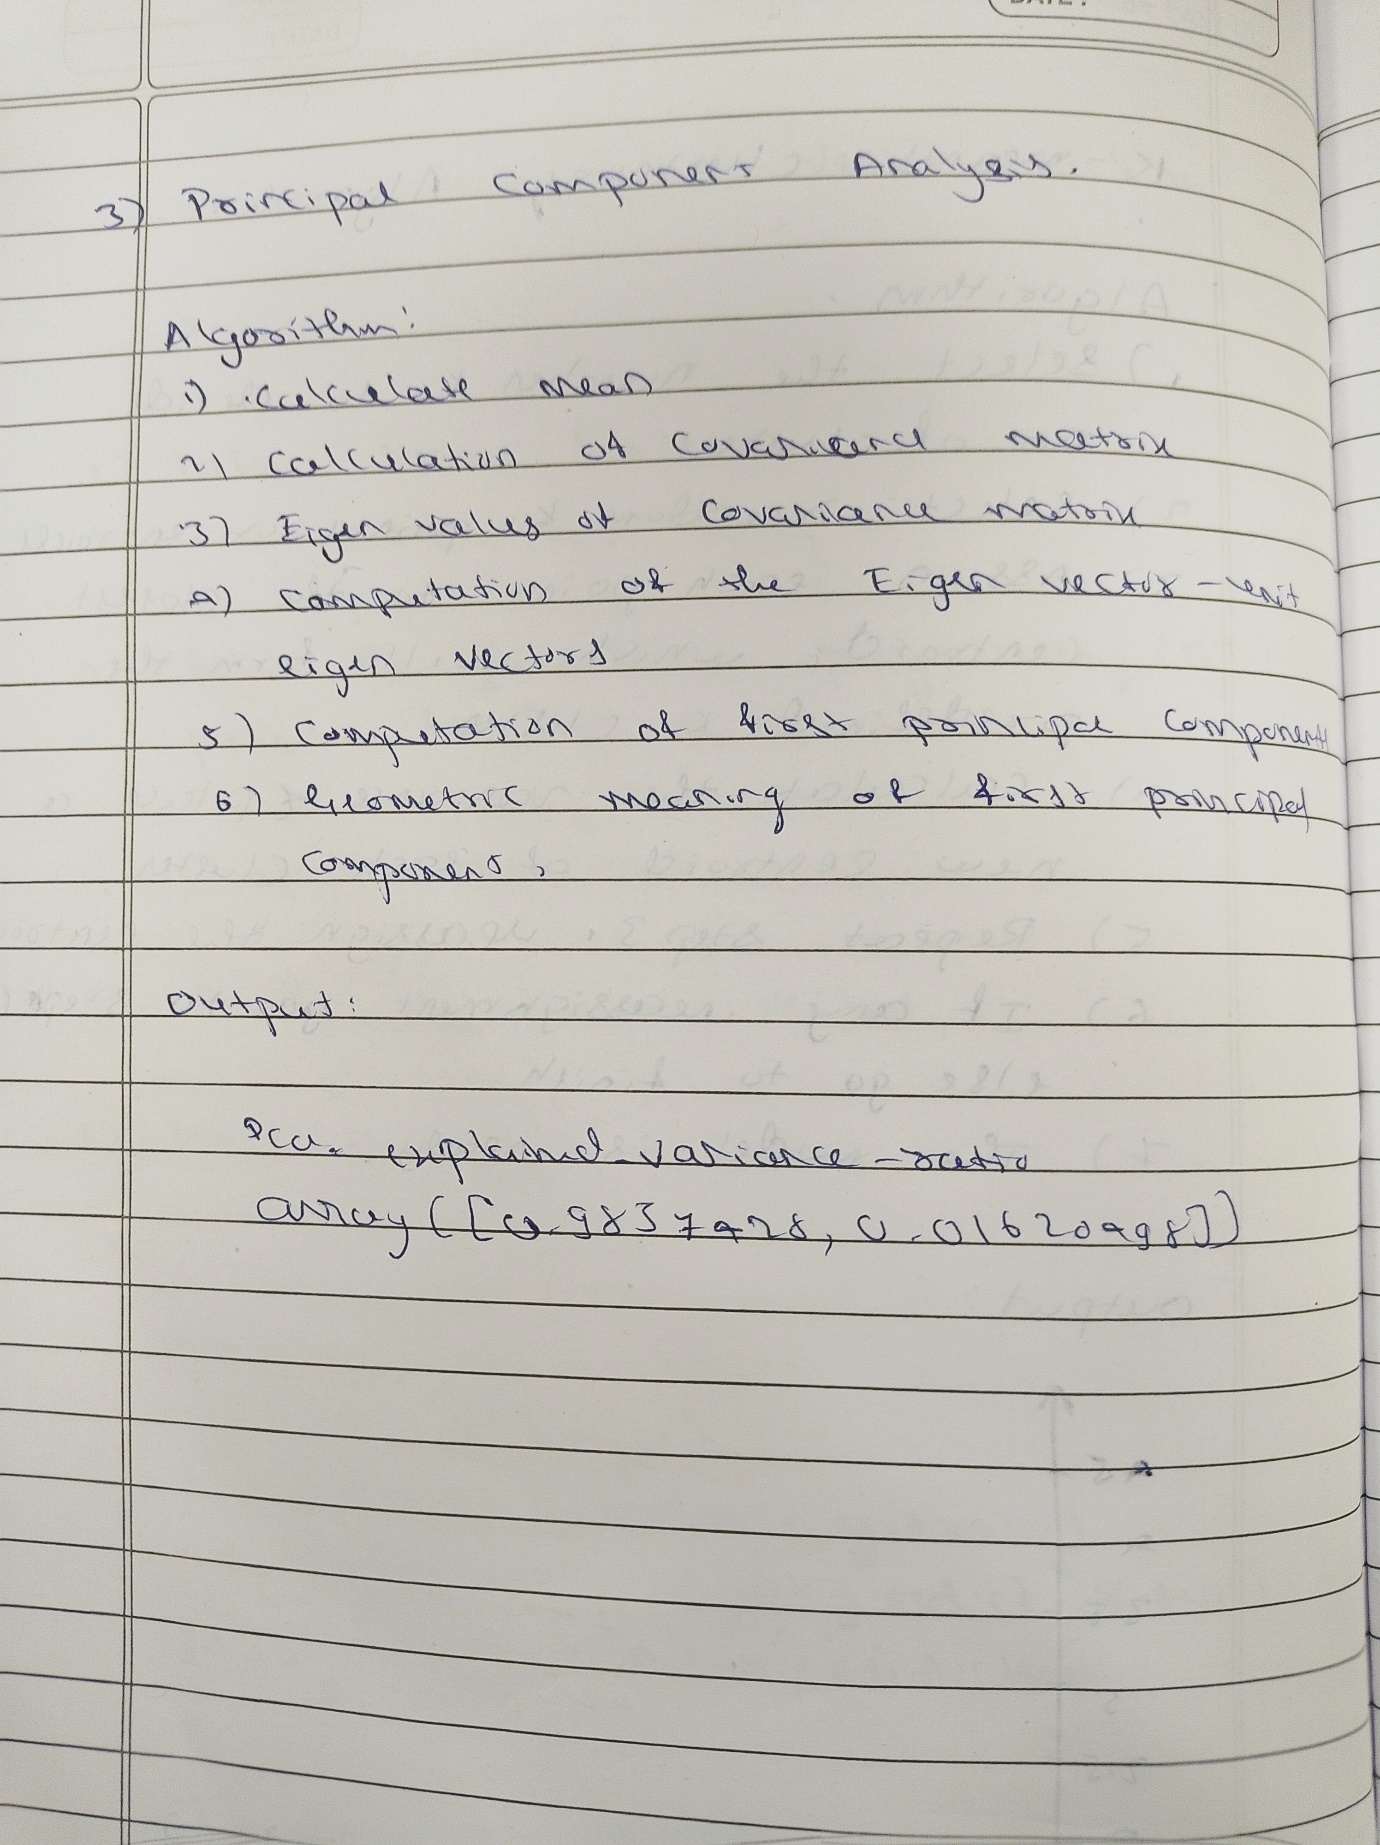 DATE:
3) Principal Component Analysis.
Algorithm:
1) Calculate mean
2) Calculation of Covariance matrix
3) Eigen values of Covariance matrix
4) Computation of the Eigen vector - unit
eigen vectors
5) Computation of first principal Component
6) Geometric meaning of first principal
component,
Output:
pca. explained_variance_ratio
array([0.9837428, 0.01620498])